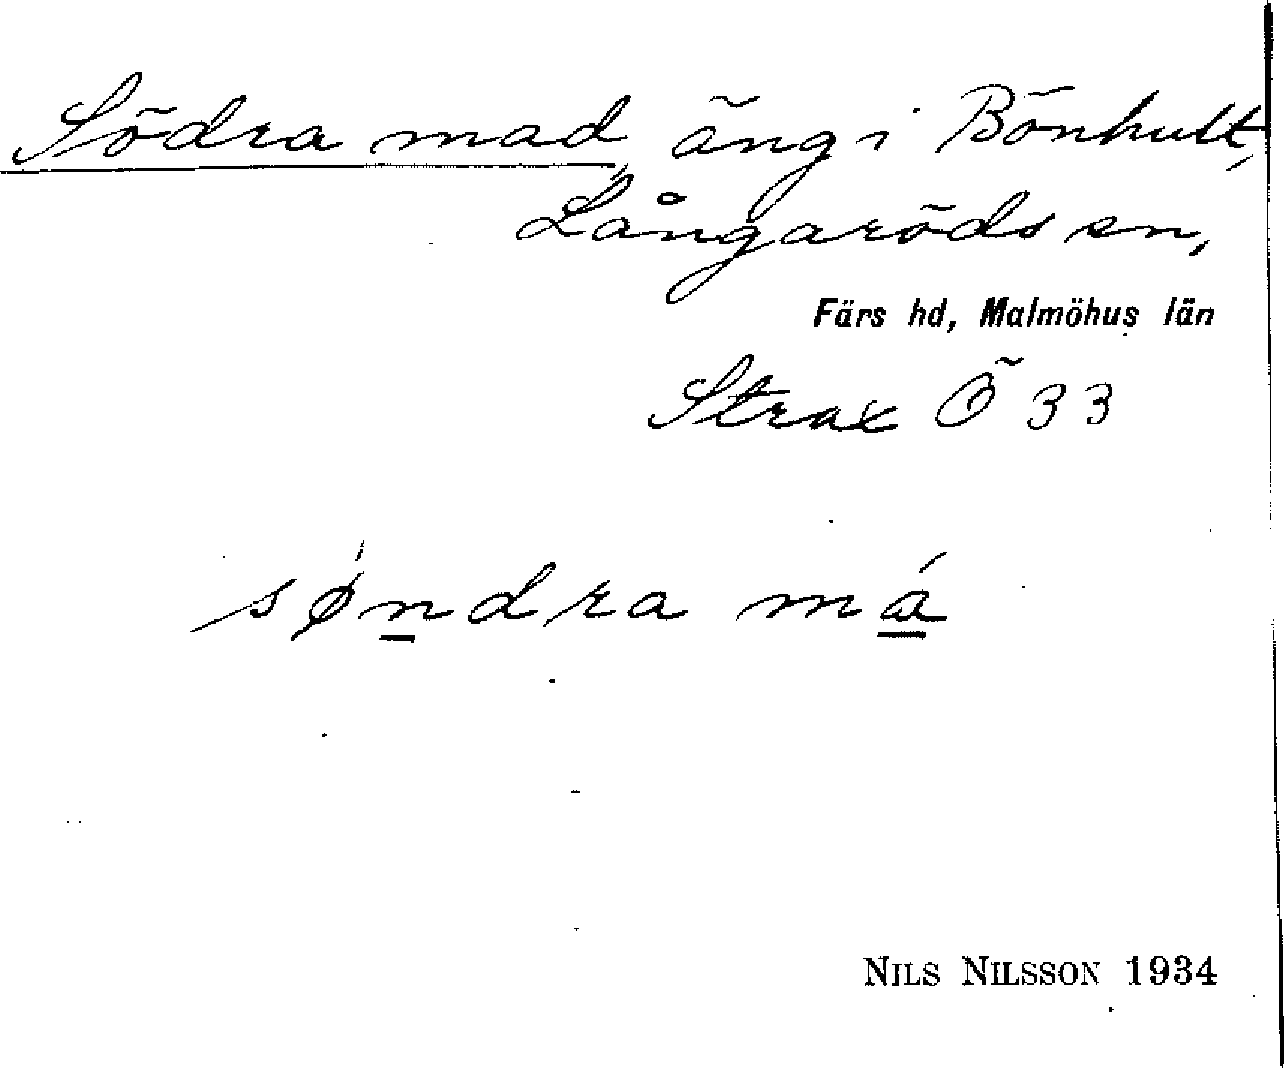 Södra mad, äng i Bönhult,
Långaröds sn,
Färs hd, Malmöhus län
Strax Ö 33
sǿndra má
NILS NILSSON 1934